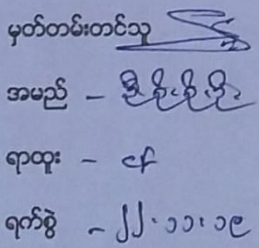 မှတ်တမ်းတင်သူ
အမည် - ဦးစိုးစိုးဦး
ရာထူး -
ရက်စွဲ - ၂၂.၁၁.၁၉